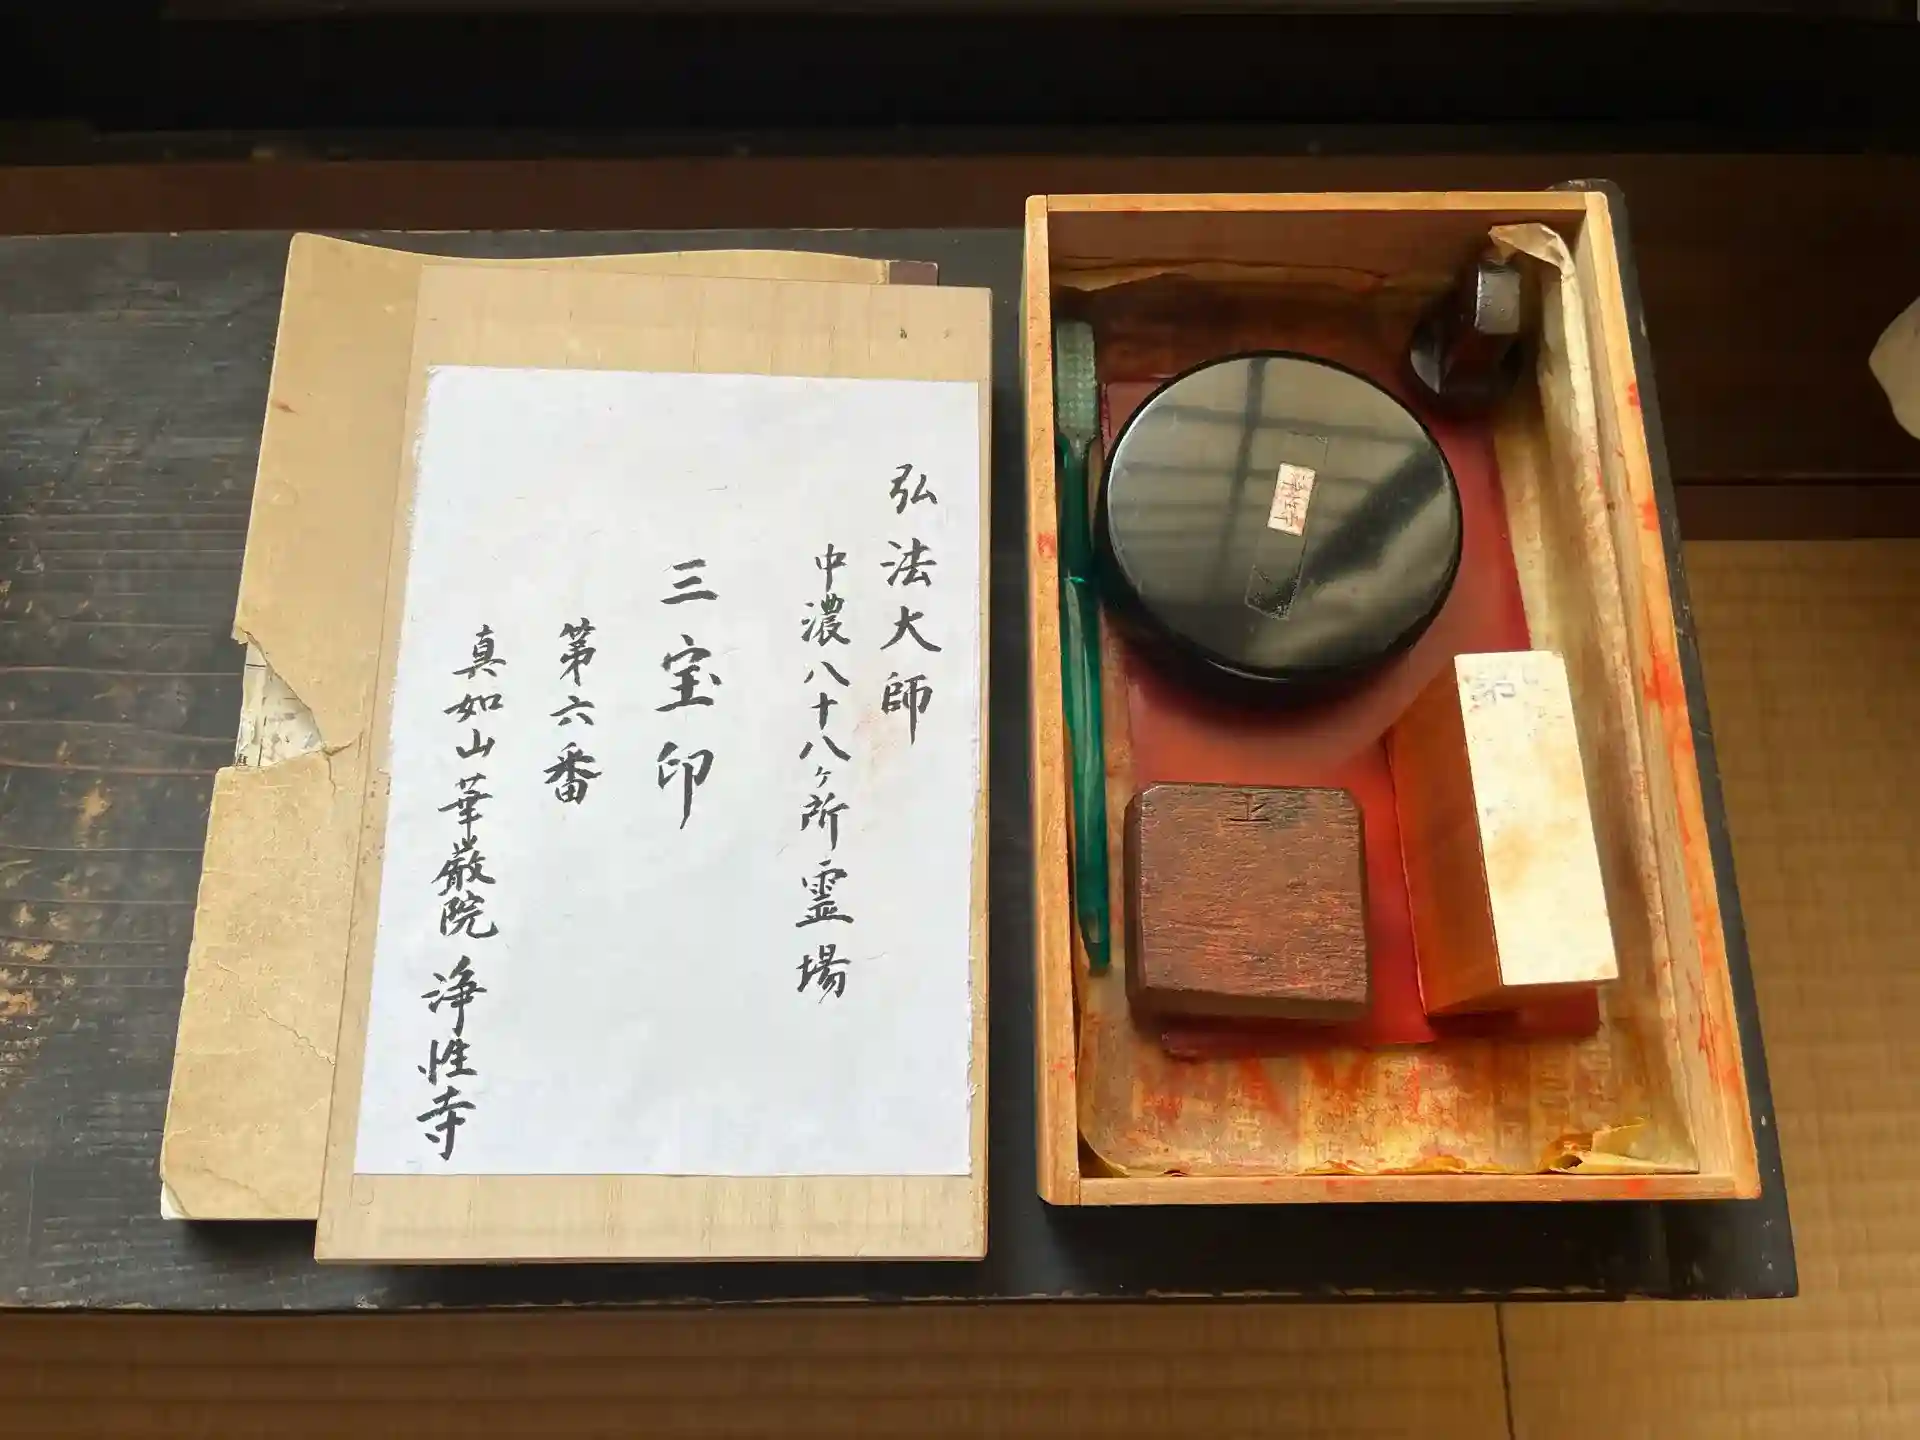 弘法大師
中濃八十八ヶ所霊場
三宝印
第六番
真如山華厳院 浄性寺
浄性寺
上